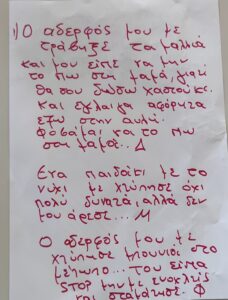 1) Ο αδερφός μου με
τράβηξε τα μαλλιά
και μου είπε να μην
το πω στη μαμά, γιατί
θα σου δώσω χαστούκι.
Και έκλαιγα αφόρητα
έξω στην αυλή.
Φοβάμαι να το πω
στη μαμά.. Δ
Ένα παιδάκι με το
νύχι με χτύπησε όχι
πολύ δυνατά, αλλά δεν
μου άρεσε... Μ
Ο αδερφός μου με
χτύπησε μπουνιά στο
μέτωπο... του είπα
STOP μην με ενοχλείς
και σταμάτησε. Φ